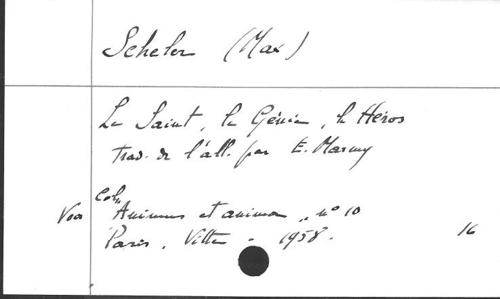 Scheler (Max)
Le Saint, le Génie, le Héros
trad. de l'all. par E. Marmy
Coll.
Animus et anima, n° 10
Paris, Vitte - 1958.
16